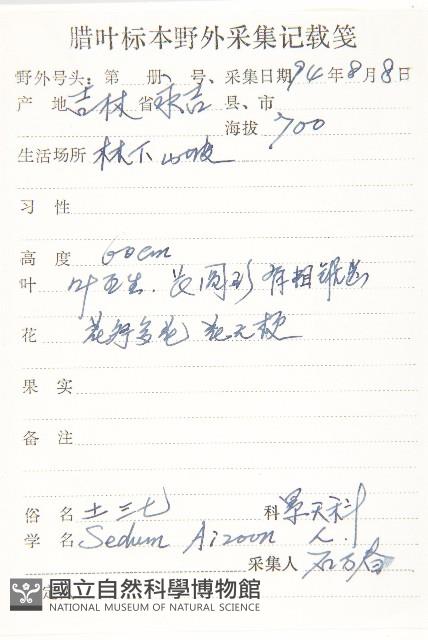 腊叶标本野外采集记载笺
野外号头：第 册 号、采集日期94年8月8日
产 地 吉林省 县、市
海拔 700
生活场所 林下 山坡
习 性
高 度 60cm
叶 叶互生. 长圆形 有粗锯齿
花 花序多花 花无梗
果 实
备 注
俗 名 土三七 科 景天科
学 名 Sedum Aizoon L.
采集人
定
國立自然科學博物館
NATIONAL MUSEUM OF NATURAL SCIENCE